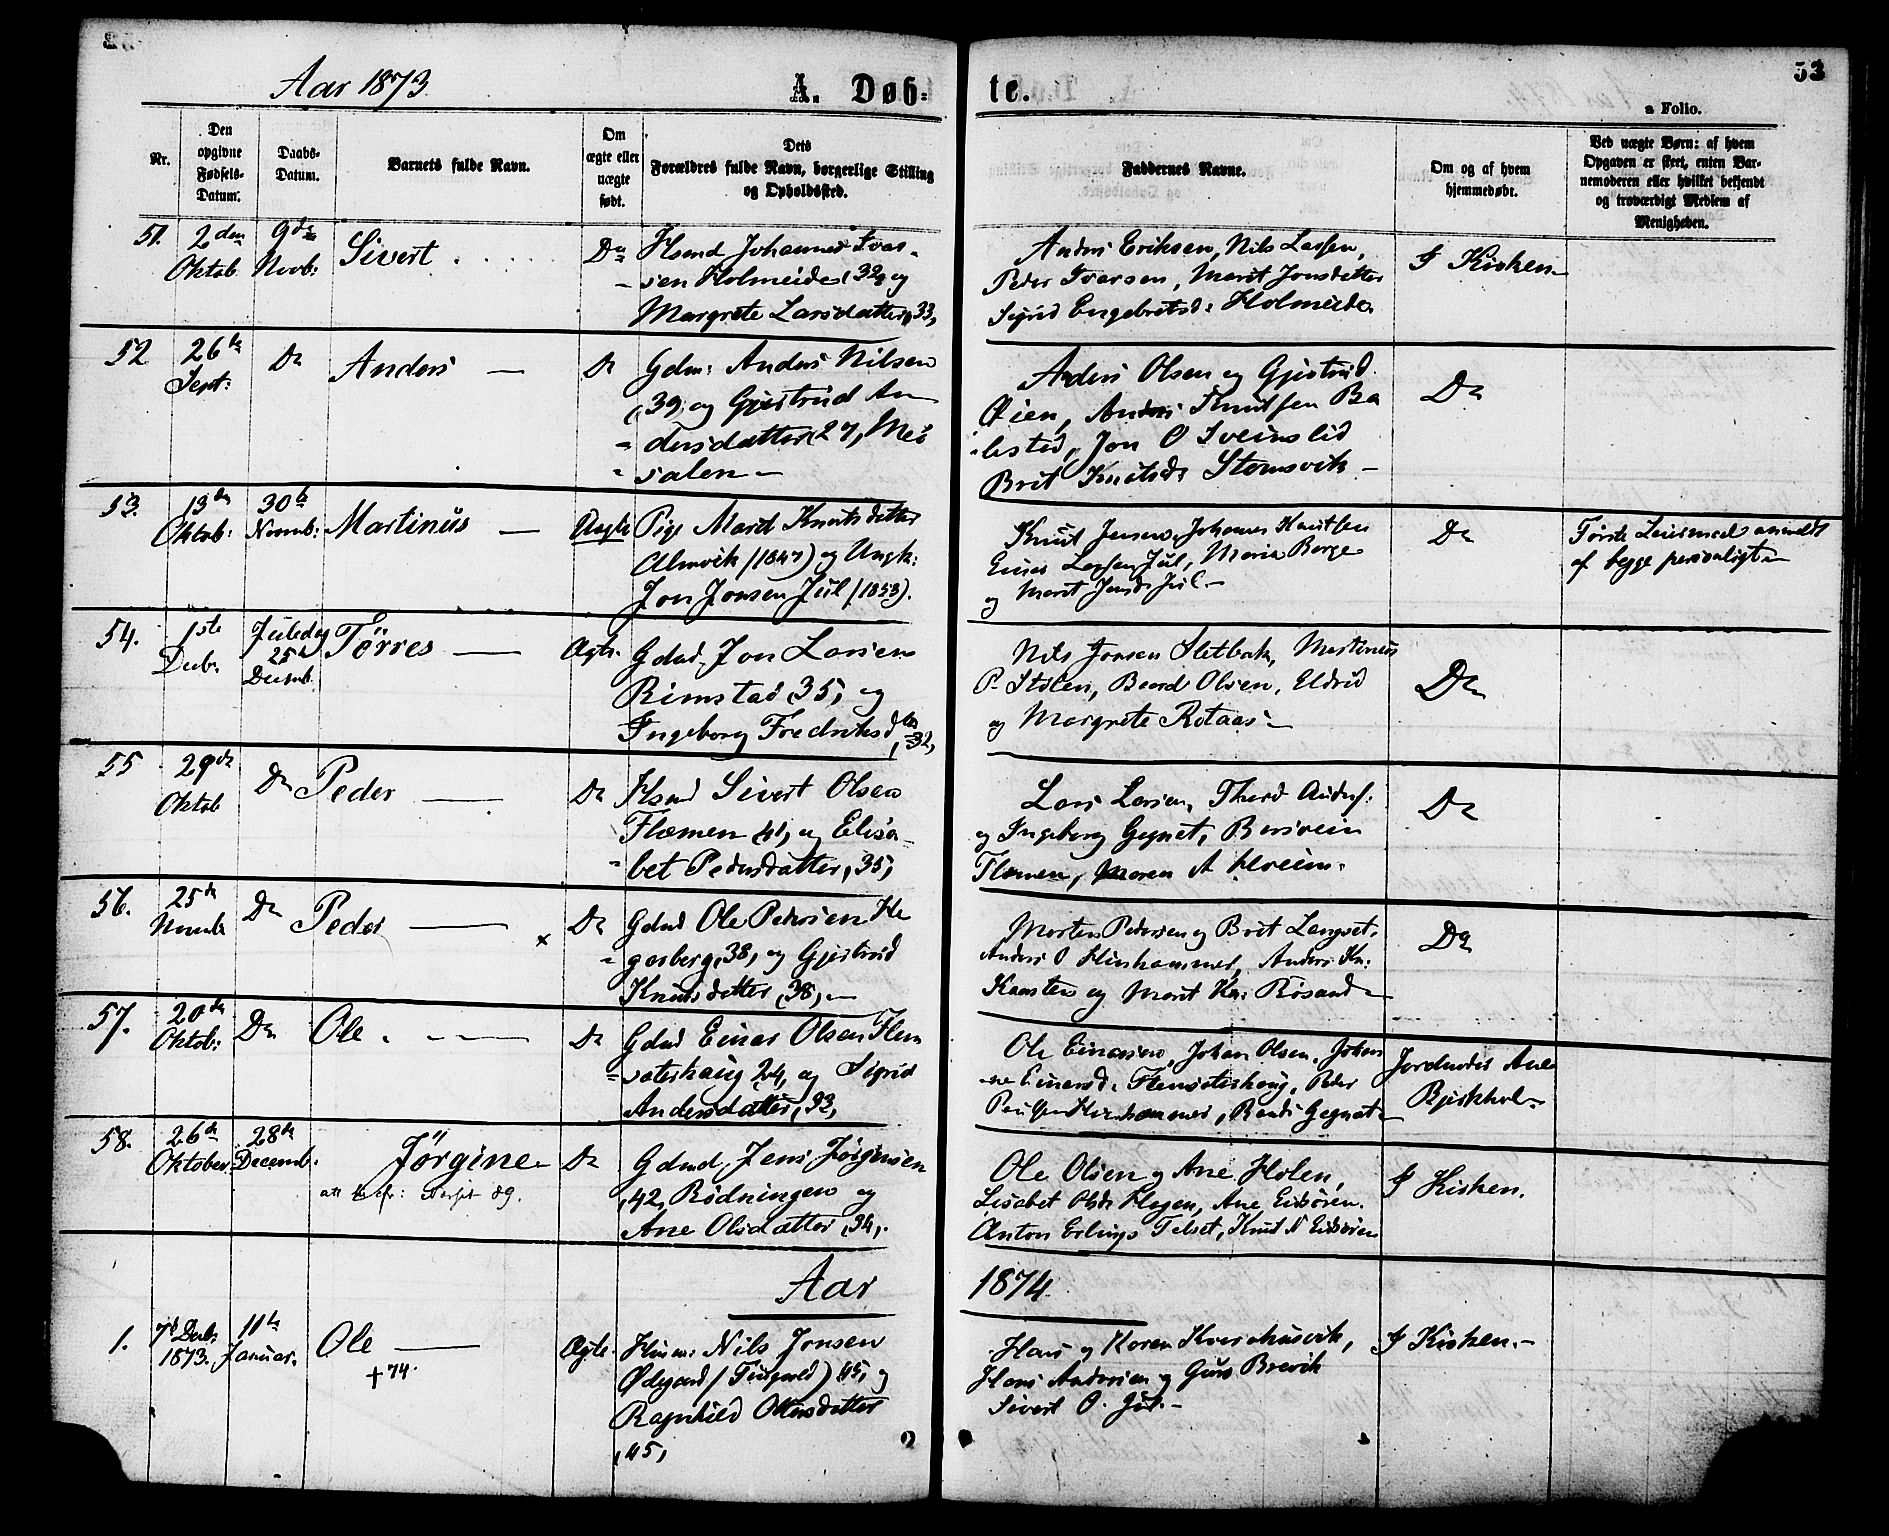 Aar 1873.
A. Døbte.
53
a Folio.
Nr.
Den opgivne Fødsels-Datum.
Daabs-Datum.
Barnets fulde Navn.
Om ægte eller uægte født.
Dets Forældres fulde Navn, borgerlige Stilling og Opholdssted.
Faddernes Navne.
Om og af hvem hjemmedøbt.
Ved uægte Børn: af hvem Opgaven er skeet, enten Barnemoderen eller hvilket bekjendt og troværdigt Medlem af Menigheden.
51. 2den Oktob. 9de Novb: Sivert Do
Hsmd Johannes Ivar-
sen Holmeide (32, og
Margrete Larsdatter, 33,
Anders Eriksen, Nils Larssen,
Peder Ivarsen, Marit Jonsdatter
Sigrid Engebretsd: Holmeide
I Kirken
52 26de Sept: Do Anders — Do
Gdm: Anders Nilsen
(39, og Gjertrud An
dersdatter (27, Mei
salen —
Anders Olsen og Gjertrud
Øien, Anders Knutssen Ba
lested, Jon O Sveinslid
Brit Knutsd: Stomsvik —
Do
53. 13de Oktob: 30te Novmb: Martinus — Uægte
Pige Mard Knutsdatter
Almvik (1847) og Ungk:
Jon Jonsen Jul (1853).
Knut Jensen, Johannes Knutssen
Einar Larssen Jul, Maria Berge
og Marit Jensd: Jul —
Do
Første Leiermaal anmeldt
af begge personligt —
54. 1ste Decb. Juledag 25de Decemb. Tørres — Ægte.
Gdmd, Jon Larsen
Rimstad, 35, og
Ingeborg Fredriksdtr, 32,
Nils Jonsen Sletbak, Martinus
P. Stølen, Baard Olsen, Eldrid
og Margrete Rotaas —
Do
55 29de Oktob Do Peder — Do
Hsmd Sivert Olsen
Flemmen 41, og Elisa-
bet Pedersdatter, 35,
Lars Larsen, Thord Anders:
og Ingeborg Gegnet, Beresvein
Flemmen, Maren A Ulveim.
Do
56. 25de Novmb Do Peder — x Do
Gdmd Ole Pedersen He
gerberg, 38, og Gjertrud
Knutsdatter, 38, —
Morten Pedersen og Brit Langset,
Anders O Hinhammer, Anders Kn:
Kaarsten og Marit Kn: Røsand —
Do
57. 20de Oktob: Do Ole — Do
Gdmd Einar Olsen Flem
sæterhaug 24, og Sigrid
Andersdatter, 33,
Ole Einarsen, Johan Olsen, Johan
ne Einarsd: Flemsæterhaug, Peder
Paulsen Hinhammer, Randi Gegnet —
Jordmoder Ane
Bjerkhol —
58. 26de Oktober. 28de Decemb. Jørgine Do
Gdmd, Jens Jørgensen
42, Rødningen og
Ane Olsdatter, 34,.
Ole Olsen og Ane Holen,
Lisabet Olsd: Hagen, Ane Eidsøren
Anton Erlings: Telset, Knut N Eidsøren
I Kirken.
Aar 1874.
1. 7de Decb. 1873. 11te Januar. Ole — Ægte.
+ 74.
Husm: Nils Jonsen
Ødegaard (Tingvold) 45, og
Ragnhild Olsdatter
, 45,
Hans og Karen Kvernhusvik,
Hans Andersen og Guro Brevik
Sivert O. Jul —
I Kirken —